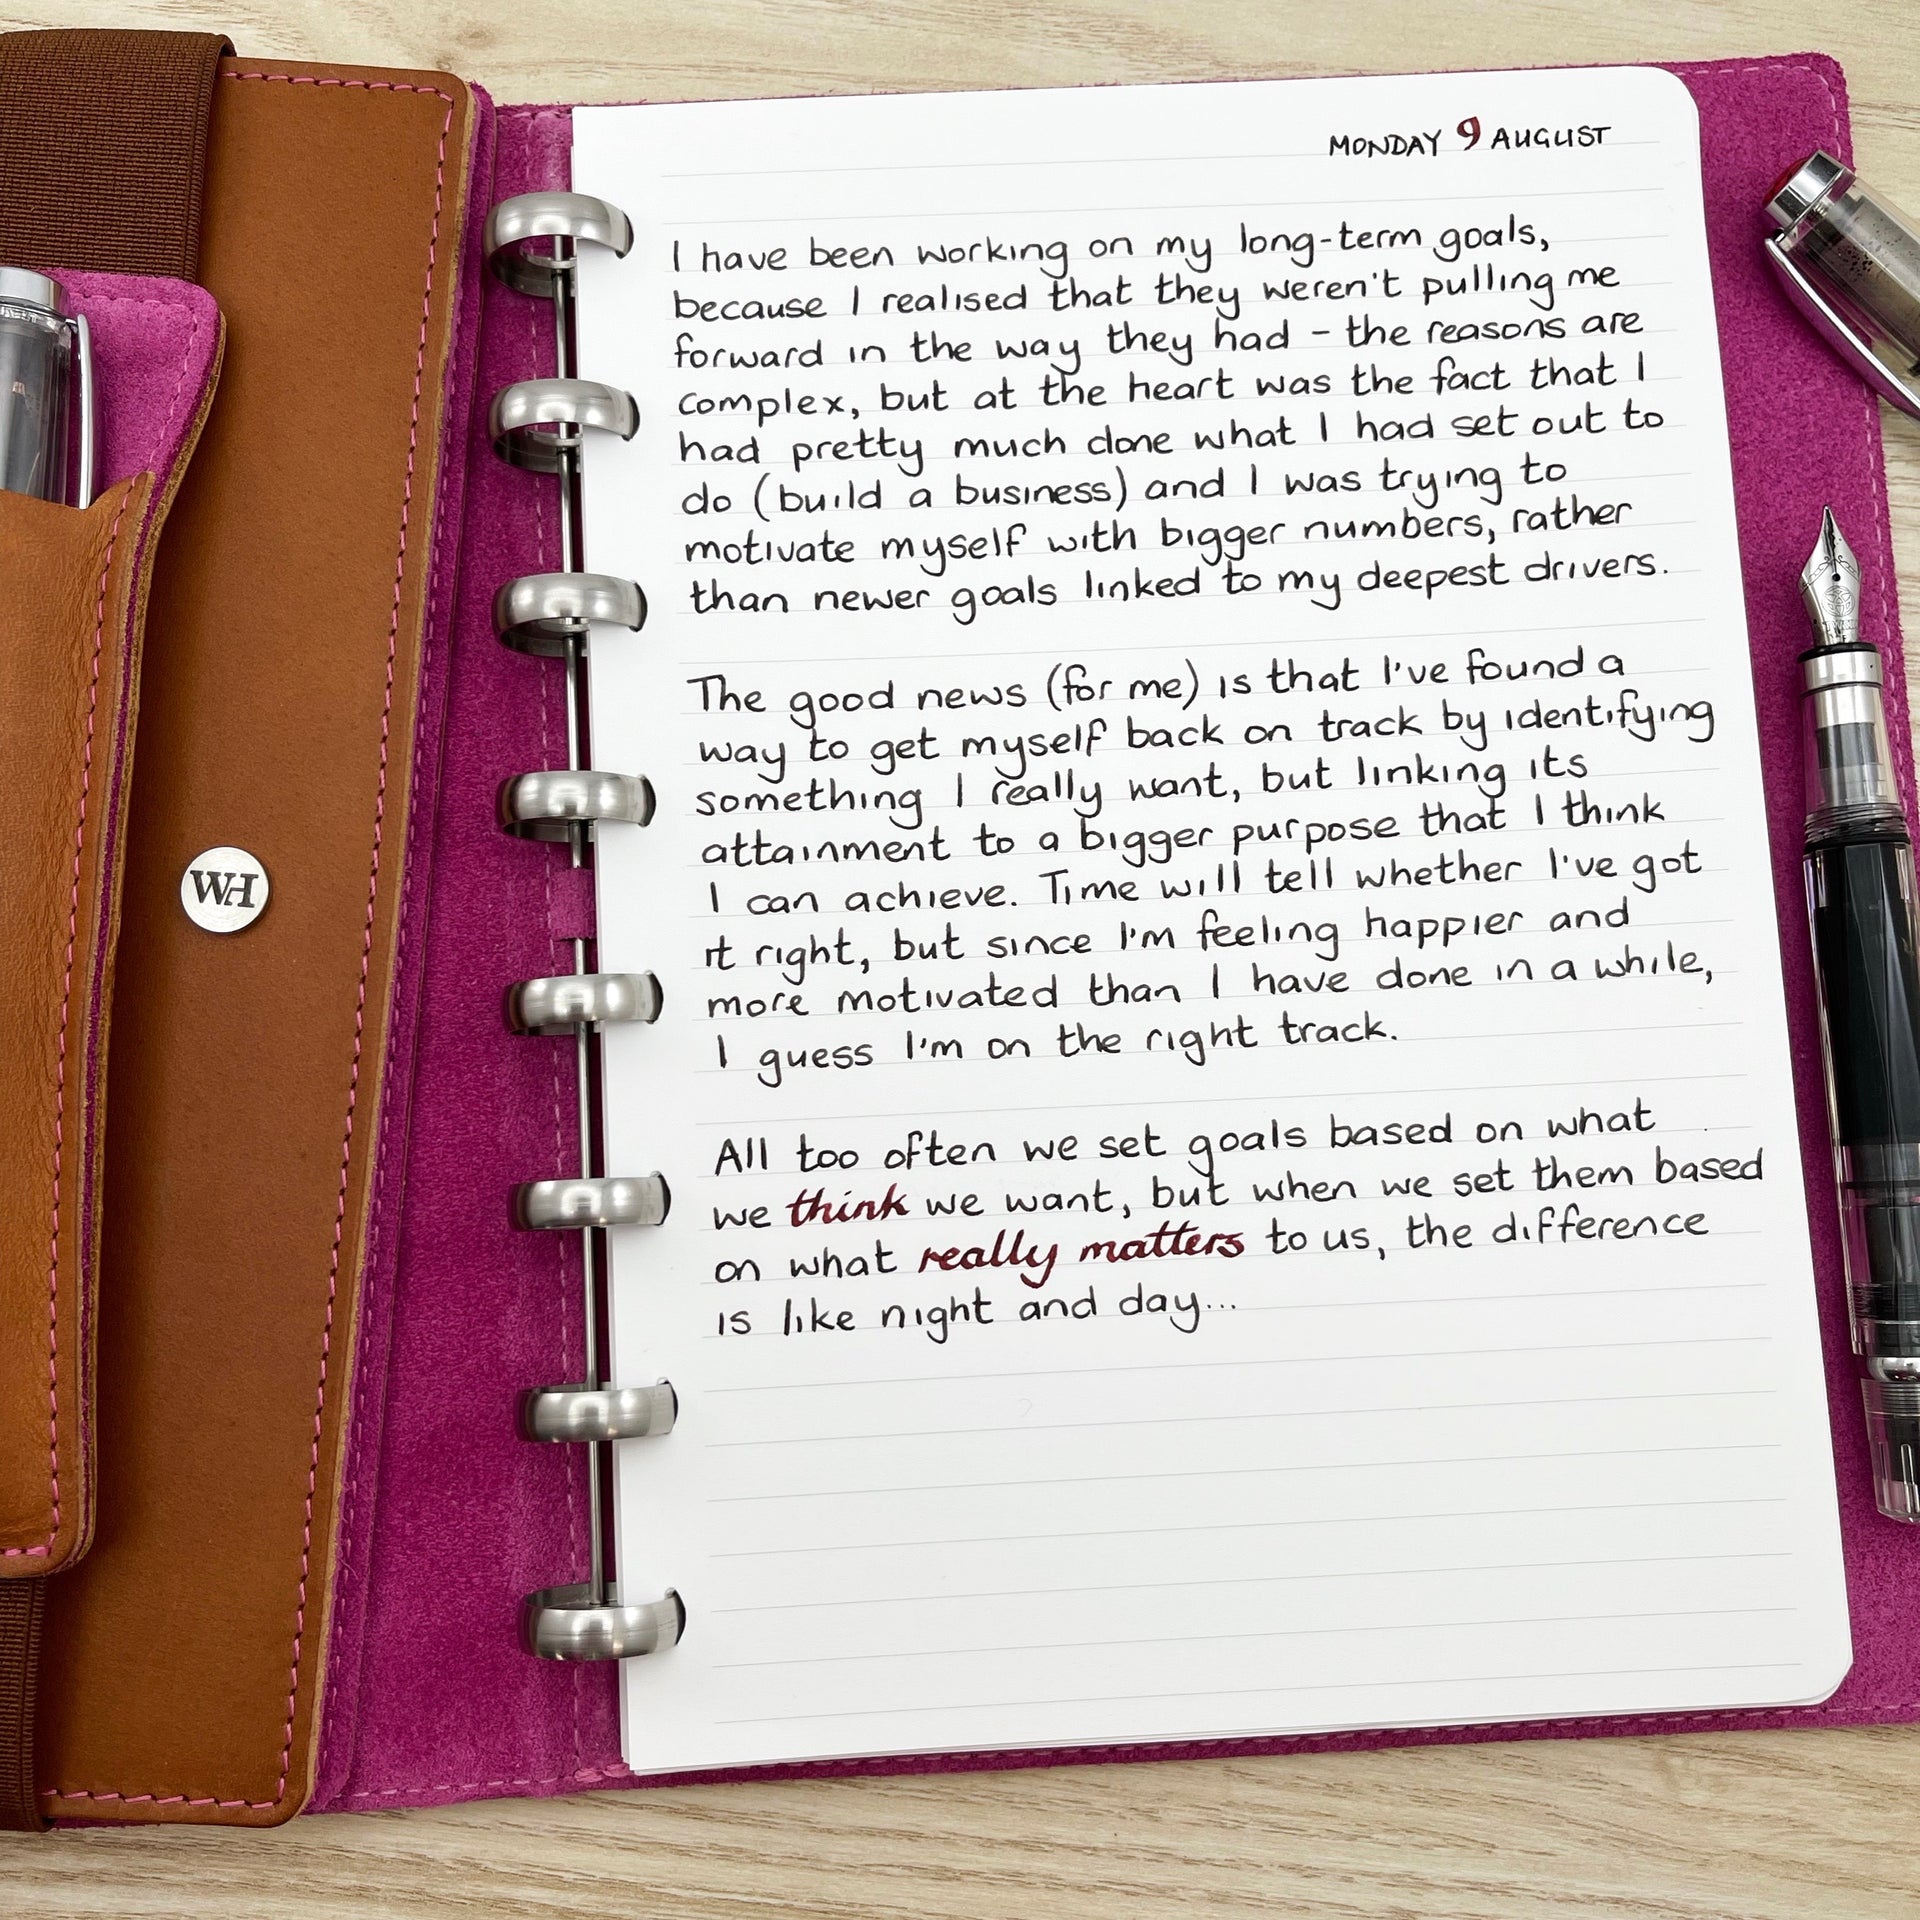 MONDAY 9 AUGUST
I have been working on my long-term goals,
because I realised that they weren't pulling me
forward in the way they had - the reasons are
complex, but at the heart was the fact that I
had pretty much done what I had set out to
do (build a business) and I was trying to
motivate myself with bigger numbers, rather
than newer goals linked to my deepest drivers.
The good news (for me) is that I've found a
way to get myself back on track by identifying
something I really want, but linking its
attainment to a bigger purpose that I think
I can achieve. Time will tell whether I've got
it right, but since I'm feeling happier and
more motivated than I have done in a while,
I guess I'm on the right track.
All too often we set goals based on what
we think we want, but when we set them based
on what really matters to us, the difference
is like night and day...
WH